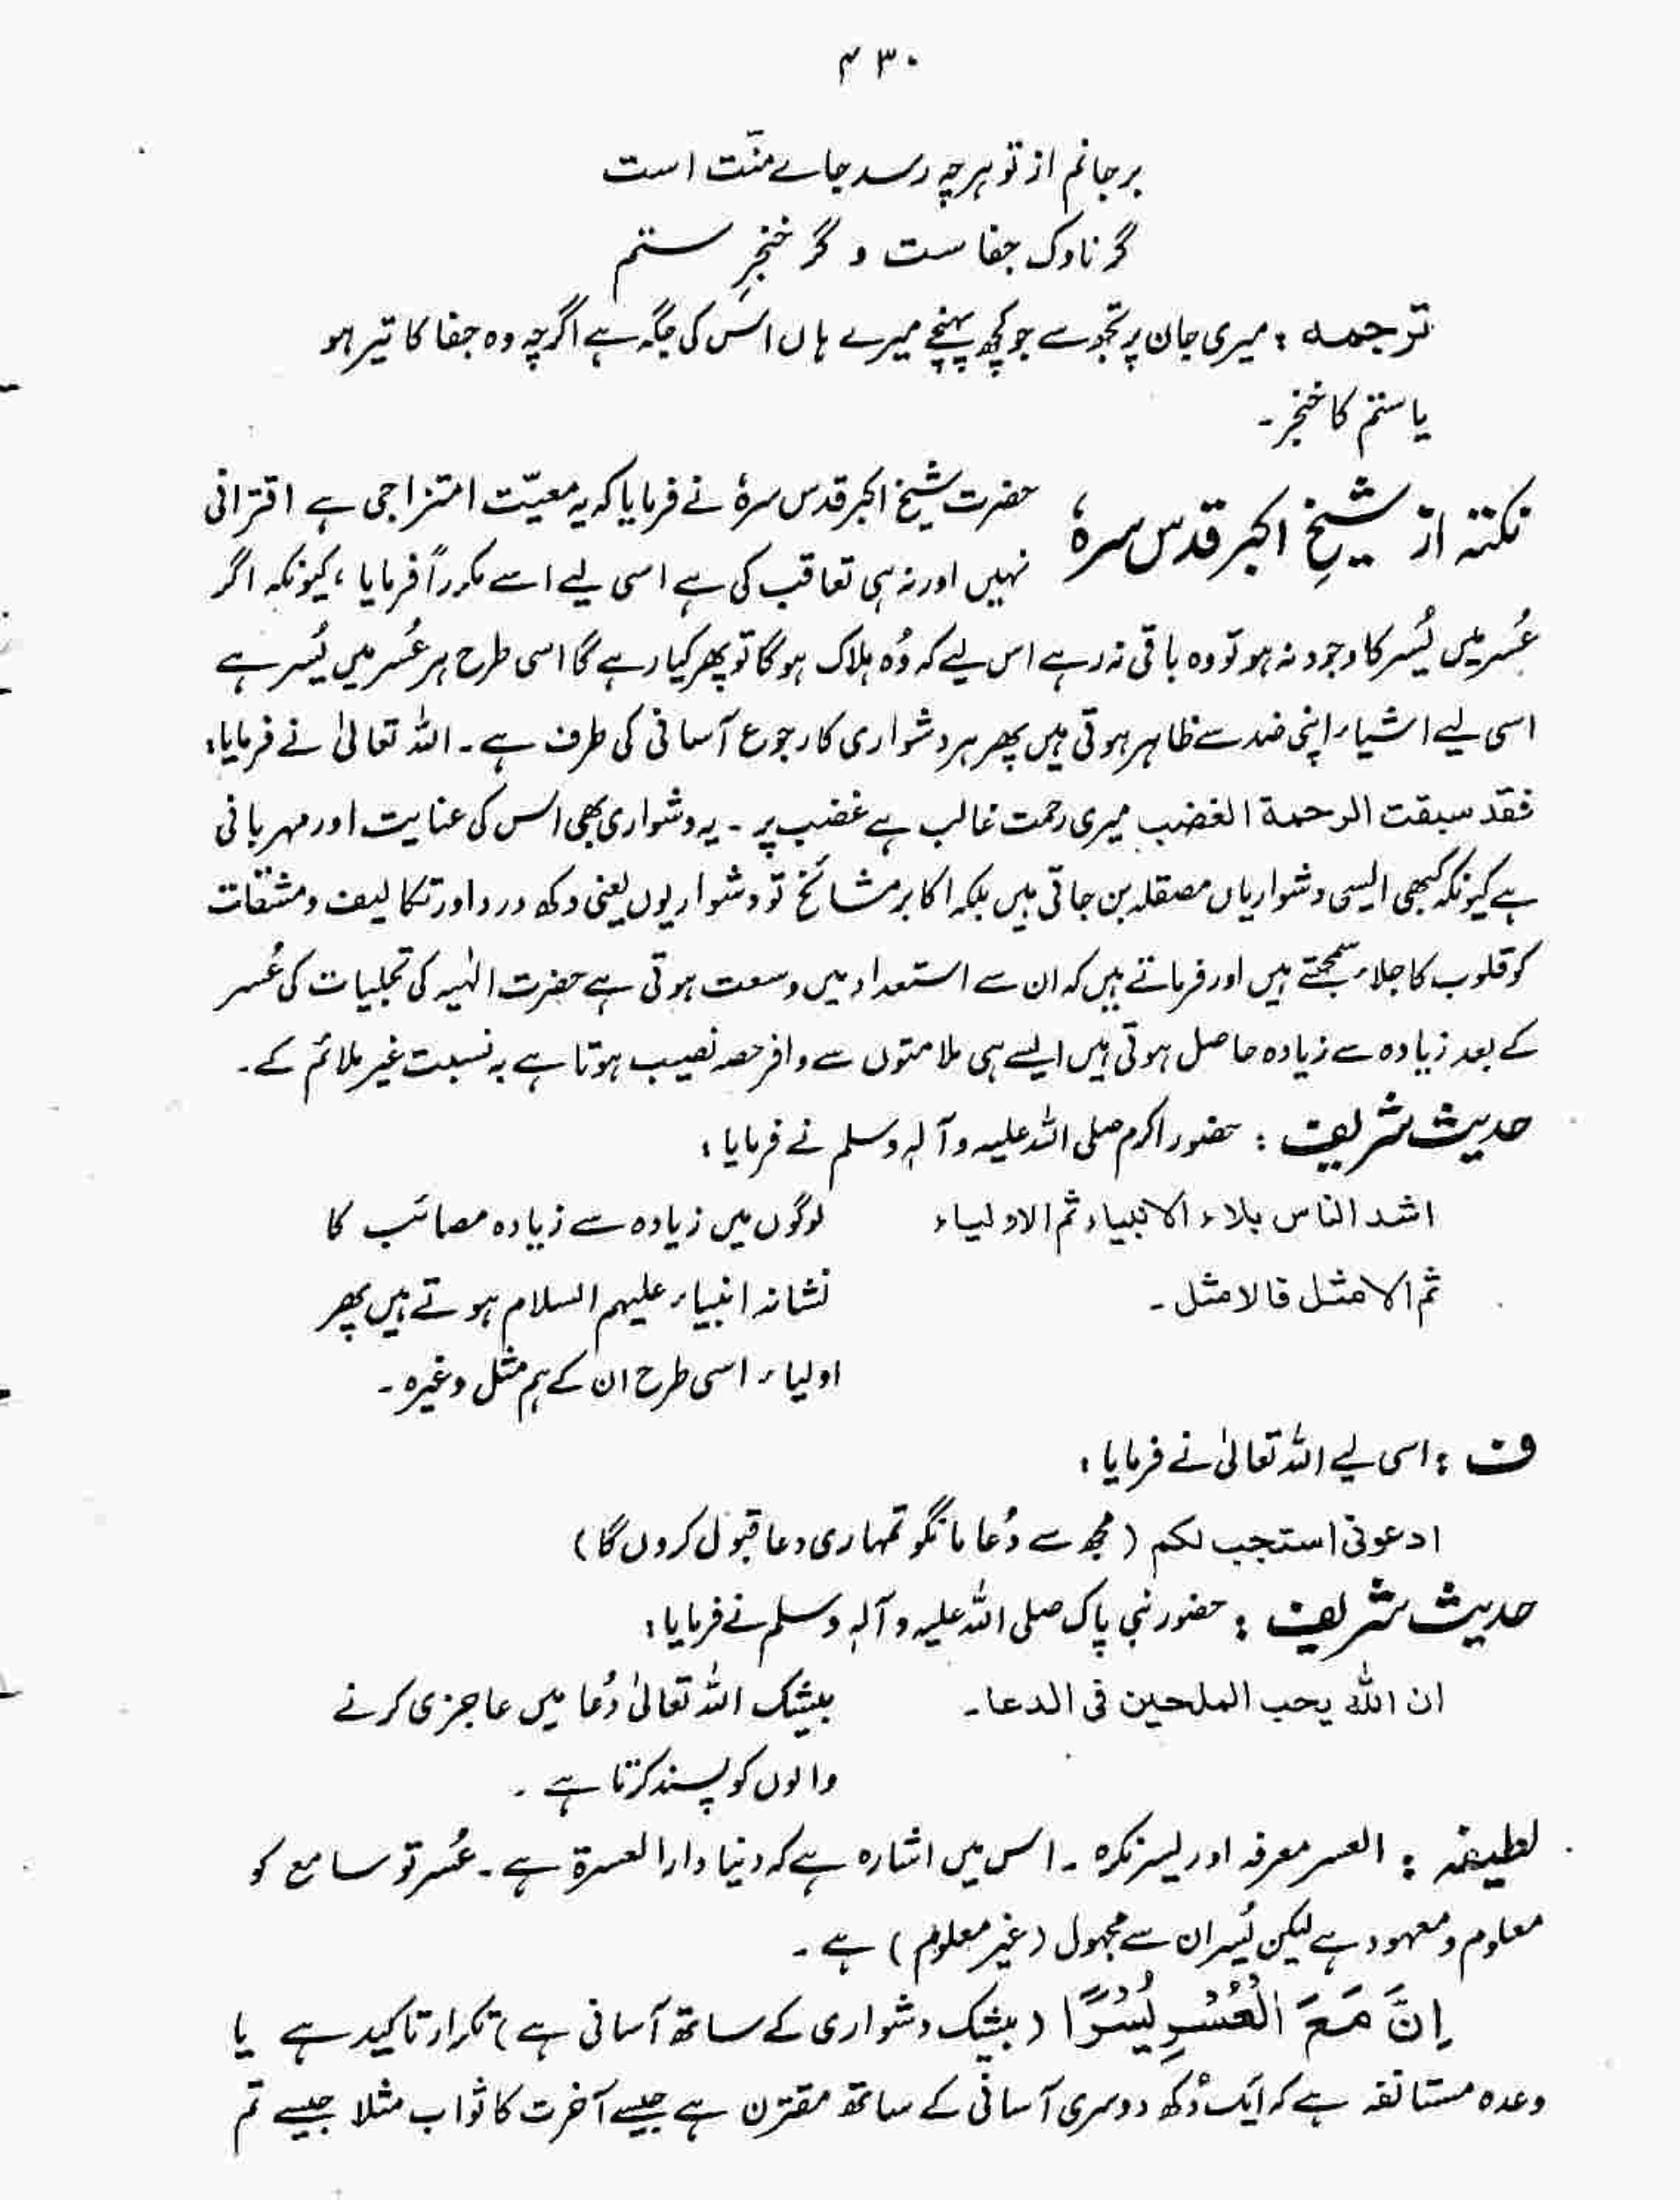 ۴۳۰
بر جانم از تو ہرچہ رسد جاے منّت است
گر ناوک جفا ست و گر خنجرِ ستم
ترجمہ : میری جان پر تجھ سے جو کچھ پہنچے میرے ہاں اس کی جگہ ہے اگرچہ وہ جفا کا تیر ہو
یا ستم کا خنجر ۔
نکتہ از شیخِ اکبر قدس سرہٗ
حضرت شیخ اکبر قدس سرہٗ نے فرمایا کہ یہ معیّت امتزاجی ہے اقترانی
نہیں اور نہ ہی تعاقب کی ہے اسی لیے اسے مکرراً فرمایا ، کیونکہ اگر
عُسر میں یُسر کا وجود نہ ہو تو وہ باقی نہ رہے اس لیے کہ وُہ ہلاک ہو گا تو پھر کیا رہے گا اسی طرح ہر عُسر میں یُسر ہے
اسی لیے اشیاء اپنی ضد سے ظاہر ہوتی ہیں پھر ہر دشواری کا رجوع آسانی کی طرف ہے ۔ اللہ تعالیٰ نے فرمایا :
فقد سبقت الرحمة الغضب میری رحمت غالب ہے غضب پر ۔ یہ دشواری بھی اس کی عنایت اور مہربانی
ہے کیونکہ کبھی ایسی دشواریاں مصقلہ بن جاتی ہیں بلکہ اکابر مشائخ تو دشواریوں یعنی دکھ درد اور تکالیف و مشقات
کو قلوب کا جلاء سمجھتے ہیں اور فرماتے ہیں کہ ان سے استعداد میں وسعت ہوتی ہے حضرت الٰہیہ کی تجلیات کی عُسر
کے بعد زیادہ سے زیادہ حاصل ہوتی ہیں ایسے ہی ملامتوں سے وافر حصہ نصیب ہوتا ہے بہ نسبت غیر ملائم کے ۔
حدیث شریف : حضور اکرم صلی اللہ علیہ وآلہٖ وسلم نے فرمایا :
اشد الناس بلاء الانبیاء ثم الاولیاء
ثم الامثل فالامثل ۔
لوگوں میں زیادہ سے زیادہ مصائب کا
نشانہ انبیاء علیہم السلام ہوتے ہیں پھر
اولیاء اسی طرح ان کے ہم مثل وغیرہ ۔
ف : اسی لیے اللہ تعالیٰ نے فرمایا :
ادعونی استجب لکم (مجھ سے دُعا مانگو تمہاری دعا قبول کروں گا)
حدیث شریف : حضور نبی پاک صلی اللہ علیہ وآلہٖ وسلم نے فرمایا :
ان اللہ یحب الملحین فی الدعا ۔
بیشک اللہ تعالیٰ دُعا میں عاجزی کرنے
والوں کو پسند کرتا ہے ۔
لطیفہ : العسر معرفہ اور یسر نکرہ ۔ اس میں اشارہ ہے کہ دنیا دار العسرة ہے ۔ عُسر تو سامع کو
معلوم و معہود ہے لیکن یُسر ان سے مجہول (غیر معلوم) ہے ۔
اِنَّ مَعَ الْعُسْرِ یُسْرًا (بیشک دشواری کے ساتھ آسانی ہے) تکرار تاکید ہے یا
وعدہ مستانفہ ہے کہ ایک دُکھ دوسری آسانی کے ساتھ مقترن ہے جیسے آخرت کا ثواب مثلا جیسے تم